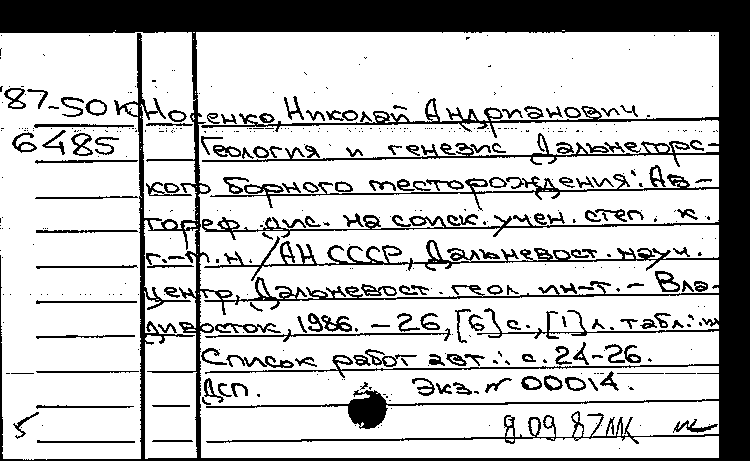 '87-50K Носенко, Николай Андрианович.
6485 Геология и генезис Дальнегорс-
кого борного месторождения: Ав-
тореф. дис. на соиск. учен. степ. к.
г.-м.н. / АН СССР, Дальневост. науч.
центр, Дальневост. геол. ин-т. - Вла-
дивосток, 1986. - 26, [6] с., [1] л. табл.:
Список работ авт.: с. 24-26.
ДСП. Экз. № 00014.
5 8.09.87